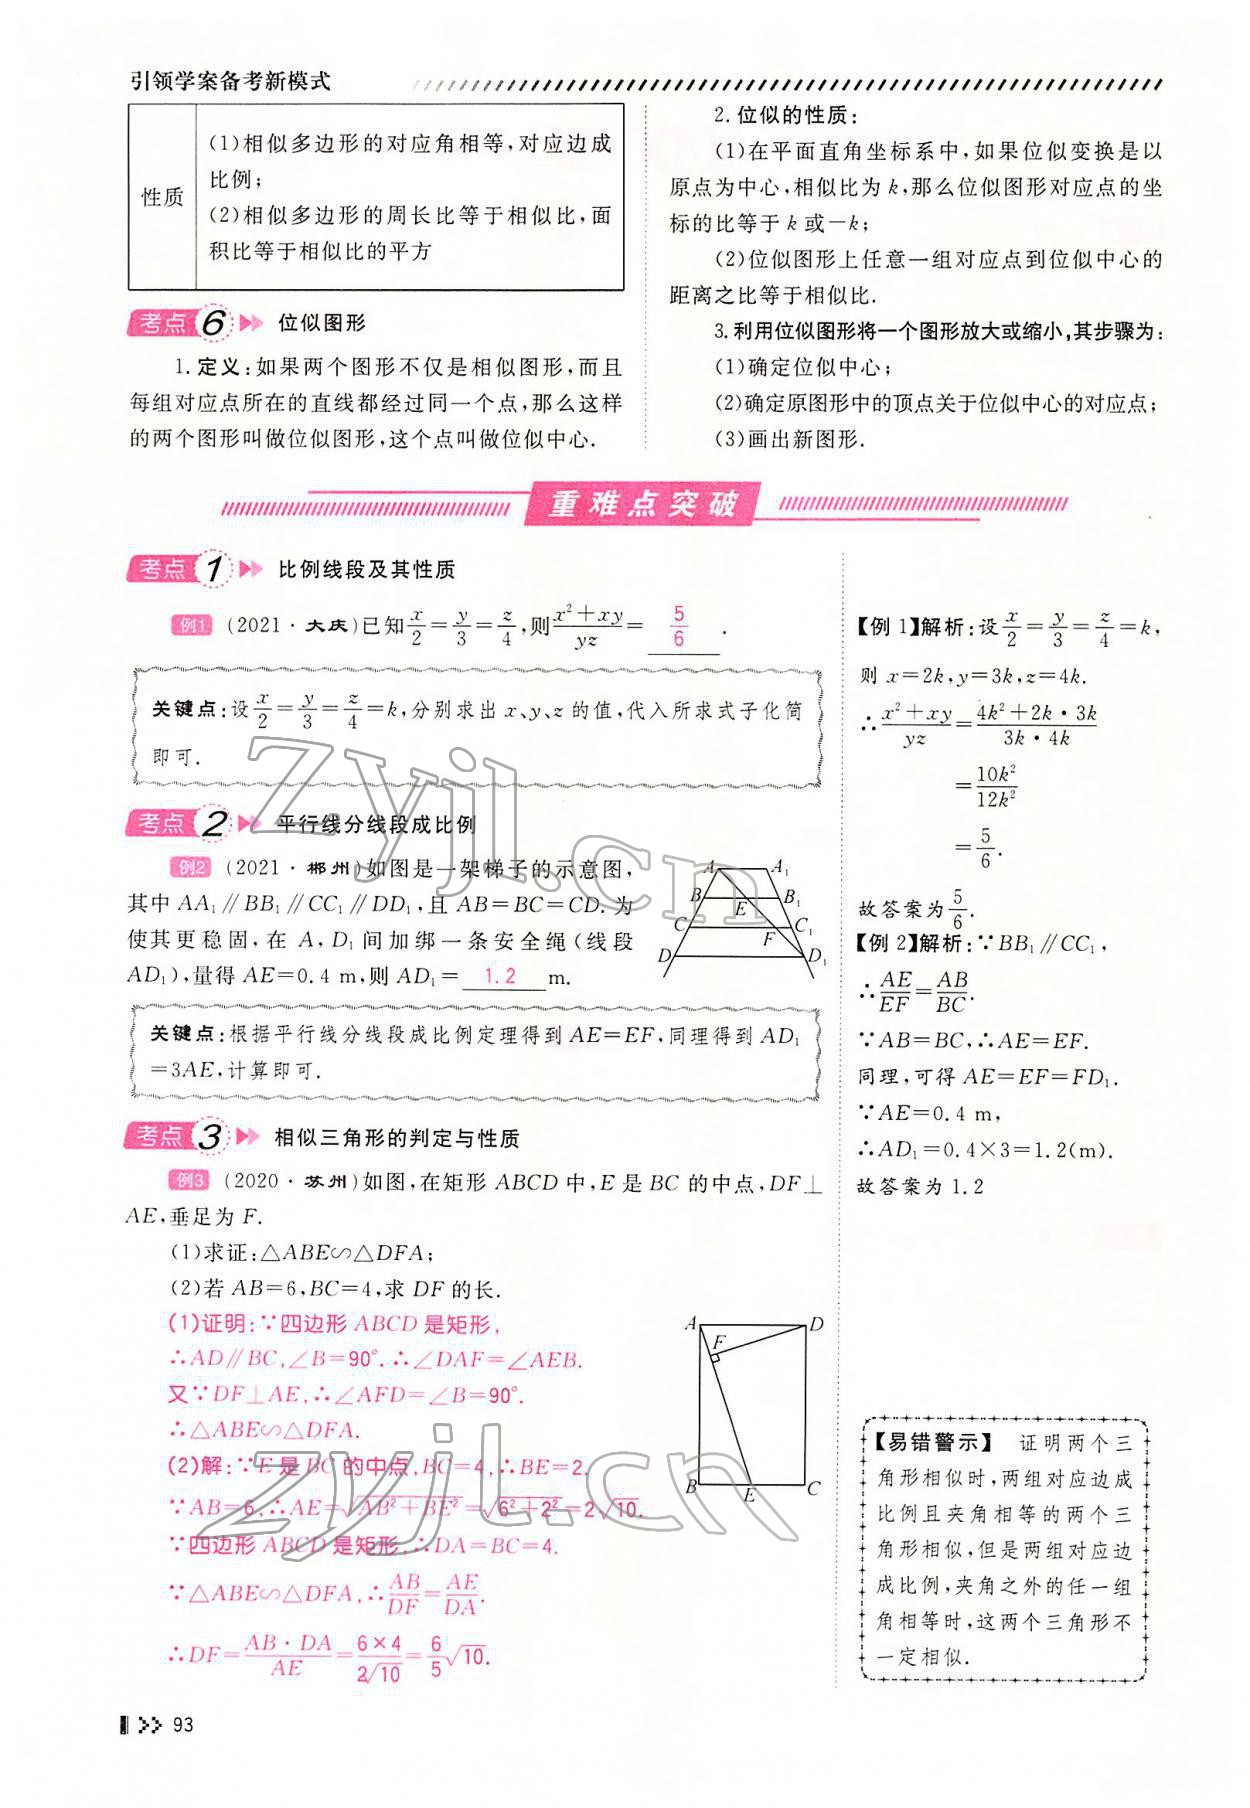 引领学案备考新模式
性质
(1)相似多边形的对应角相等,对应边成
比例;
(2)相似多边形的周长比等于相似比,面
积比等于相似比的平方
考点6 位似图形
1.定义:如果两个图形不仅是相似图形,而且
每组对应点所在的直线都经过同一个点,那么这样
的两个图形叫做位似图形,这个点叫做位似中心.
2.位似的性质:
(1)在平面直角坐标系中,如果位似变换是以
原点为中心,相似比为 k,那么位似图形对应点的坐
标的比等于 k 或-k;
(2)位似图形上任意一组对应点到位似中心的
距离之比等于相似比.
3.利用位似图形将一个图形放大或缩小,其步骤为:
(1)确定位似中心;
(2)确定原图形中的顶点关于位似中心的对应点;
(3)画出新图形.
重难点突破
考点1 比例线段及其性质
例1 (2021·大庆)已知x/2=y/3=z/4,则(x²+xy)/yz= 5/6 .
关键点:设x/2=y/3=z/4=k,分别求出 x、y、z 的值,代入所求式子化简
即可.
考点2 平行线分线段成比例
例2 (2021·郴州)如图是一架梯子的示意图,
其中 AA₁∥BB₁∥CC₁∥DD₁,且 AB=BC=CD.为
使其更稳固,在 A,D₁ 间加绑一条安全绳(线段
AD₁),量得 AE=0.4 m,则 AD₁= 1.2 m.
A A₁
B E B₁
C F C₁
D D₁
关键点:根据平行线分线段成比例定理得到 AE=EF,同理得到 AD₁
=3AE,计算即可.
考点3 相似三角形的判定与性质
例3 (2020·苏州)如图,在矩形 ABCD 中,E 是 BC 的中点,DF⊥
AE,垂足为 F.
(1)求证:△ABE∽△DFA;
(2)若 AB=6,BC=4,求 DF 的长.
(1)证明:∵四边形 ABCD 是矩形,
∴AD∥BC,∠B=90°.∴∠DAF=∠AEB.
又∵DF⊥AE,∴∠AFD=∠B=90°.
∴△ABE∽△DFA.
(2)解:∵E 是 BC 的中点,BC=4,∴BE=2.
∵AB=6,∴AE=√(AB²+BE²)=√(6²+2²)=2√10.
∵四边形 ABCD 是矩形,∴DA=BC=4.
∵△ABE∽△DFA,∴AB/DF=AE/DA.
∴DF=(AB·DA)/AE=(6×4)/(2√10)=6/5√10.
A D
F
B E C
【例 1】解析:设x/2=y/3=z/4=k,
则 x=2k,y=3k,z=4k.
∴(x²+xy)/yz=(4k²+2k·3k)/(3k·4k)
=10k²/12k²
=5/6.
故答案为5/6.
【例 2】解析:∵BB₁∥CC₁,
∴AE/EF=AB/BC.
∵AB=BC,∴AE=EF.
同理,可得 AE=EF=FD₁.
∵AE=0.4 m,
∴AD₁=0.4×3=1.2(m).
故答案为 1.2
【易错警示】 证明两个三
角形相似时,两组对应边成
比例且夹角相等的两个三
角形相似,但是两组对应边
成比例,夹角之外的任一组
角相等时,这两个三角形不
一定相似.
93
zyjl.cn
zyjl.cn